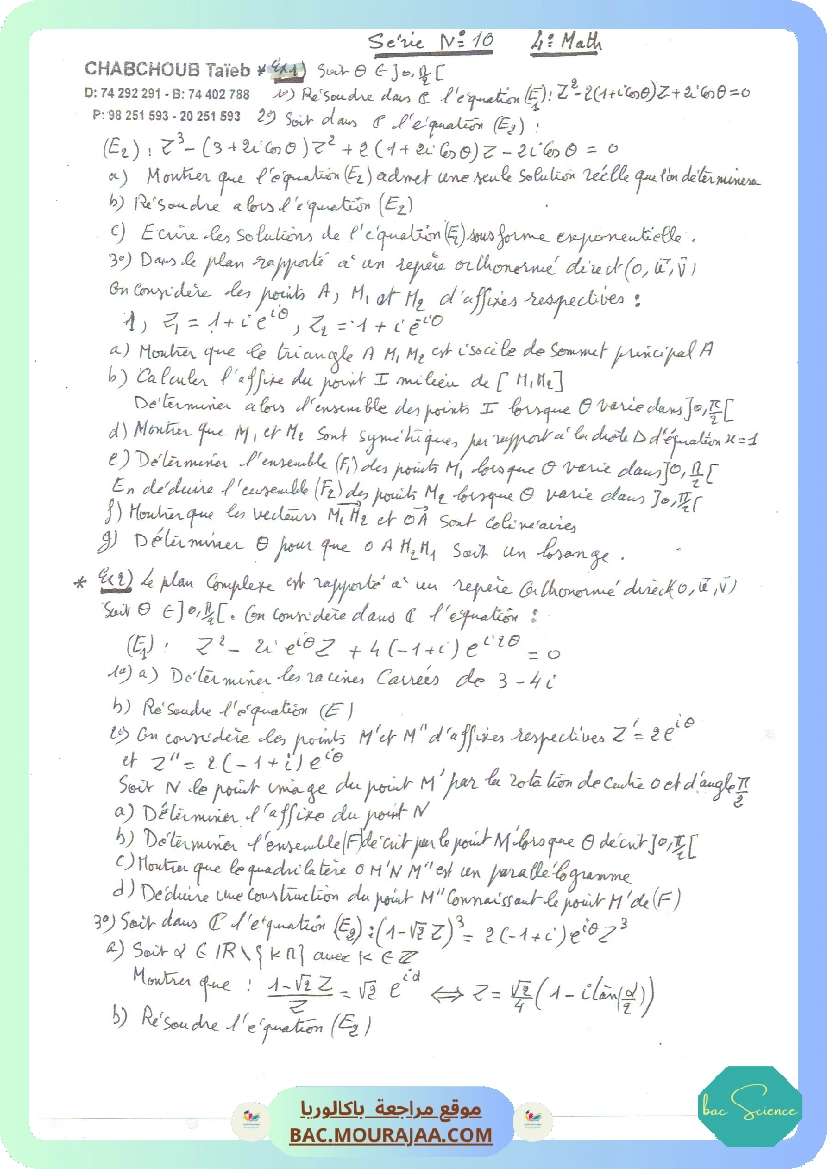 Série N° 10    4è Math
CHABCHOUB Taïeb * Ex1) Soit θ ∈ ]0, π/2[
D: 74 292 291 - B: 74 402 788    1°) Résoudre dans ℂ l'équation (E1): Z² - 2(1+i cosθ)Z + 2i cosθ = 0
P: 98 251 593 - 20 251 593    2°) Soit dans ℂ l'équation (E2) :
(E2) : Z³ - (3 + 2i cosθ) Z² + 2(1 + 2i cosθ)Z - 2i cosθ = 0
a) Montrer que l'équation (E2) admet une seule solution réelle que l'on déterminera
b) Résoudre alors l'équation (E2)
c) Ecrire les solutions de l'équation (E1) sous forme exponentielle.
3°) Dans le plan rapporté à un repère orthonormé direct (O, u⃗, v⃗)
On considère les points A, M1 et M2 d'affixes respectives :
1, Z1 = 1 + i e^{iθ}, Z2 = 1 + i e^{-iθ}
a) Montrer que le triangle A M1 M2 est isocèle de sommet principal A
b) Calculer l'affixe du point I milieu de [M1M2]
Déterminer alors l'ensemble des points I lorsque θ varie dans ]0, π/2[
d) Montrer que M1 et M2 sont symétriques par rapport à la droite Δ d'équation x = 1
e) Déterminer l'ensemble (F1) des points M1 lorsque θ varie dans ]0, π/2[
En déduire l'ensemble (F2) des points M2 lorsque θ varie dans ]0, π/2[
f) Montrer que les vecteurs M1M2 et OA sont colinéaires
g) Déterminer θ pour que O A M2 M1 soit un losange.
* Ex2) Le plan complexe est rapporté à un repère orthonormé direct (O, u⃗, v⃗)
Soit θ ∈ ]0, π/2[. On considère dans ℂ l'équation :
(E1) : Z² - 2i e^{iθ} Z + 4(-1+i) e^{i2θ} = 0
1°) a) Déterminer les racines carrées de 3 - 4i
b) Résoudre l'équation (E)
2°) On considère les points M' et M'' d'affixes respectives Z' = 2e^{iθ}
et Z'' = 2(-1+i) e^{iθ}
Soit N le point image du point M' par la rotation de centre O et d'angle π/2
a) Déterminer l'affixe du point N
b) Déterminer l'ensemble (F) décrit par le point M' lorsque θ décrit ]0, π/2[
c) Montrer que le quadrilatère O M' N M'' est un parallélogramme
d) Déduire une construction du point M'' connaissant le point M' de (F)
3°) Soit dans ℂ l'équation (E2) : (1 - √2 Z)³ = 2(-1+i) e^{iθ} Z³
a) Soit α ∈ IR \ {kπ} avec k ∈ ℤ
Montrer que : (1 - √2 Z)/Z = √2 e^{iα} ⟺ Z = √2/4 (1 - i tan(α/2))
b) Résoudre l'équation (E2)
bac Science
موقع مراجعة باكالوريا
BAC.MOURAJAA.COM